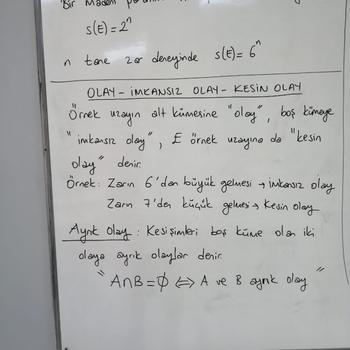 Bir
s(E)=2ⁿ
n tane zar deneyinde s(E)=6ⁿ
OLAY - İMKANSIZ OLAY - KESİN OLAY
Örnek uzayın alt kümesine "olay", boş kümeye
"imkansız olay", E örnek uzayına da "kesin
olay" denir.
Örnek: Zarın 6'dan büyük gelmesi → imkansız olay
Zarın 7'den küçük gelmesi → Kesin olay
Ayrık Olay: Kesişimleri boş küme olan iki
olaya ayrık olaylar denir.
"A∩B=∅ ⇔ A ve B ayrık olay"